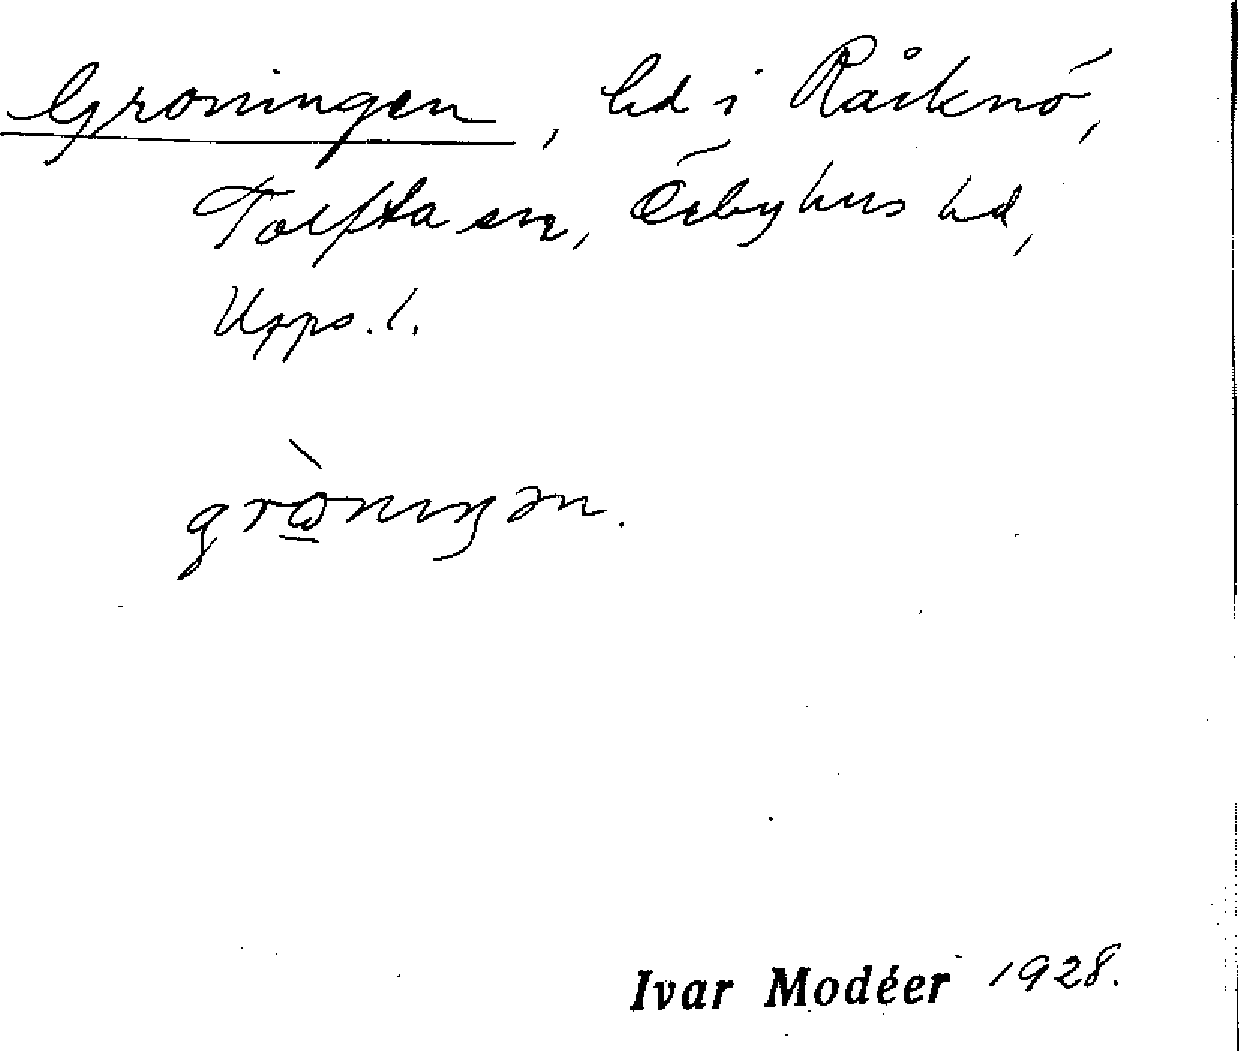 Groningen, lid i Råcknö,
Tolfta sn, Örbyhus hd,
Upps. l.
gròningən.
Ivar Modéer 1928.